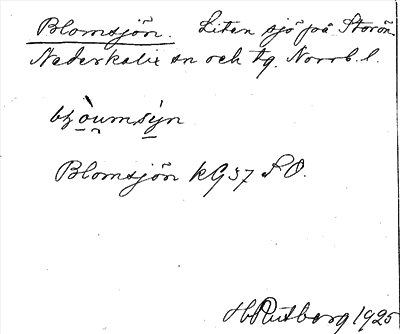 Blomsjön. Liten sjö på Storön
Nederkalix sn och tg. Norrb. l.
Blomsjön kG 37 S O.
H Rutberg 1925